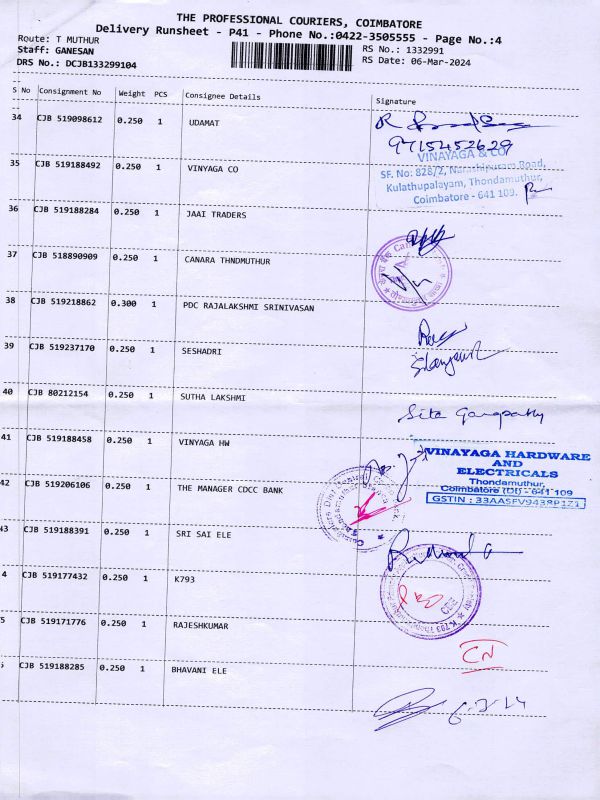 THE PROFESSIONAL COURIERS, COIMBATORE
Delivery Runsheet - P41 - Phone No.:0422-3505555 - Page No.:4
Route: T MUTHUR
RS No.: 1332991
Staff: GANESAN
RS Date: 06-Mar-2024
DRS No.: DCJB133299104
S No Consignment No Weight PCS Consignee Details Signature
34 CJB 519098612 0.250 1 UDAMAT
9715452629
35 CJB 519188492 0.250 1 VINYAGA CO
VINAYAGA & CO
SF. No: 828/2, Narashipuram Road,
Kulathupalayam, Thondamuthur,
Coimbatore - 641 109.
36 CJB 519188284 0.250 1 JAAI TRADERS
37 CJB 518890909 0.250 1 CANARA THNDMUTHUR
38 CJB 519218862 0.300 1 PDC RAJALAKSHMI SRINIVASAN
39 CJB 519237170 0.250 1 SESHADRI
40 CJB 80212154 1 SUTHA LAKSHMI
Sita Ganapathy
41 CJB 519188458 0.250 1 VINYAGA HW
VINAYAGA HARDWARE
AND
ELECTRICALS
Thondamuthur,
Coimbatore (Dt) - 641 109
GSTIN : 33AASFV9438P1Z1
42 CJB 519206106 0.250 1 THE MANAGER CDCC BANK
43 CJB 519188391 0.250 1 SRI SAI ELE
4 CJB 519177432 0.250 1 K793
5 CJB 519171776 0.250 1 RAJESHKUMAR
CN
CJB 519188285 0.250 1 BHAVANI ELE
6.3.24